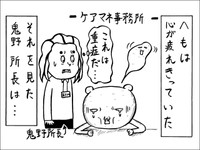 －ケアマネ事務所－
へもは
心が疲れきっていた
これは…
重症だ…
それを見た
鬼野 所長は…
鬼野所長